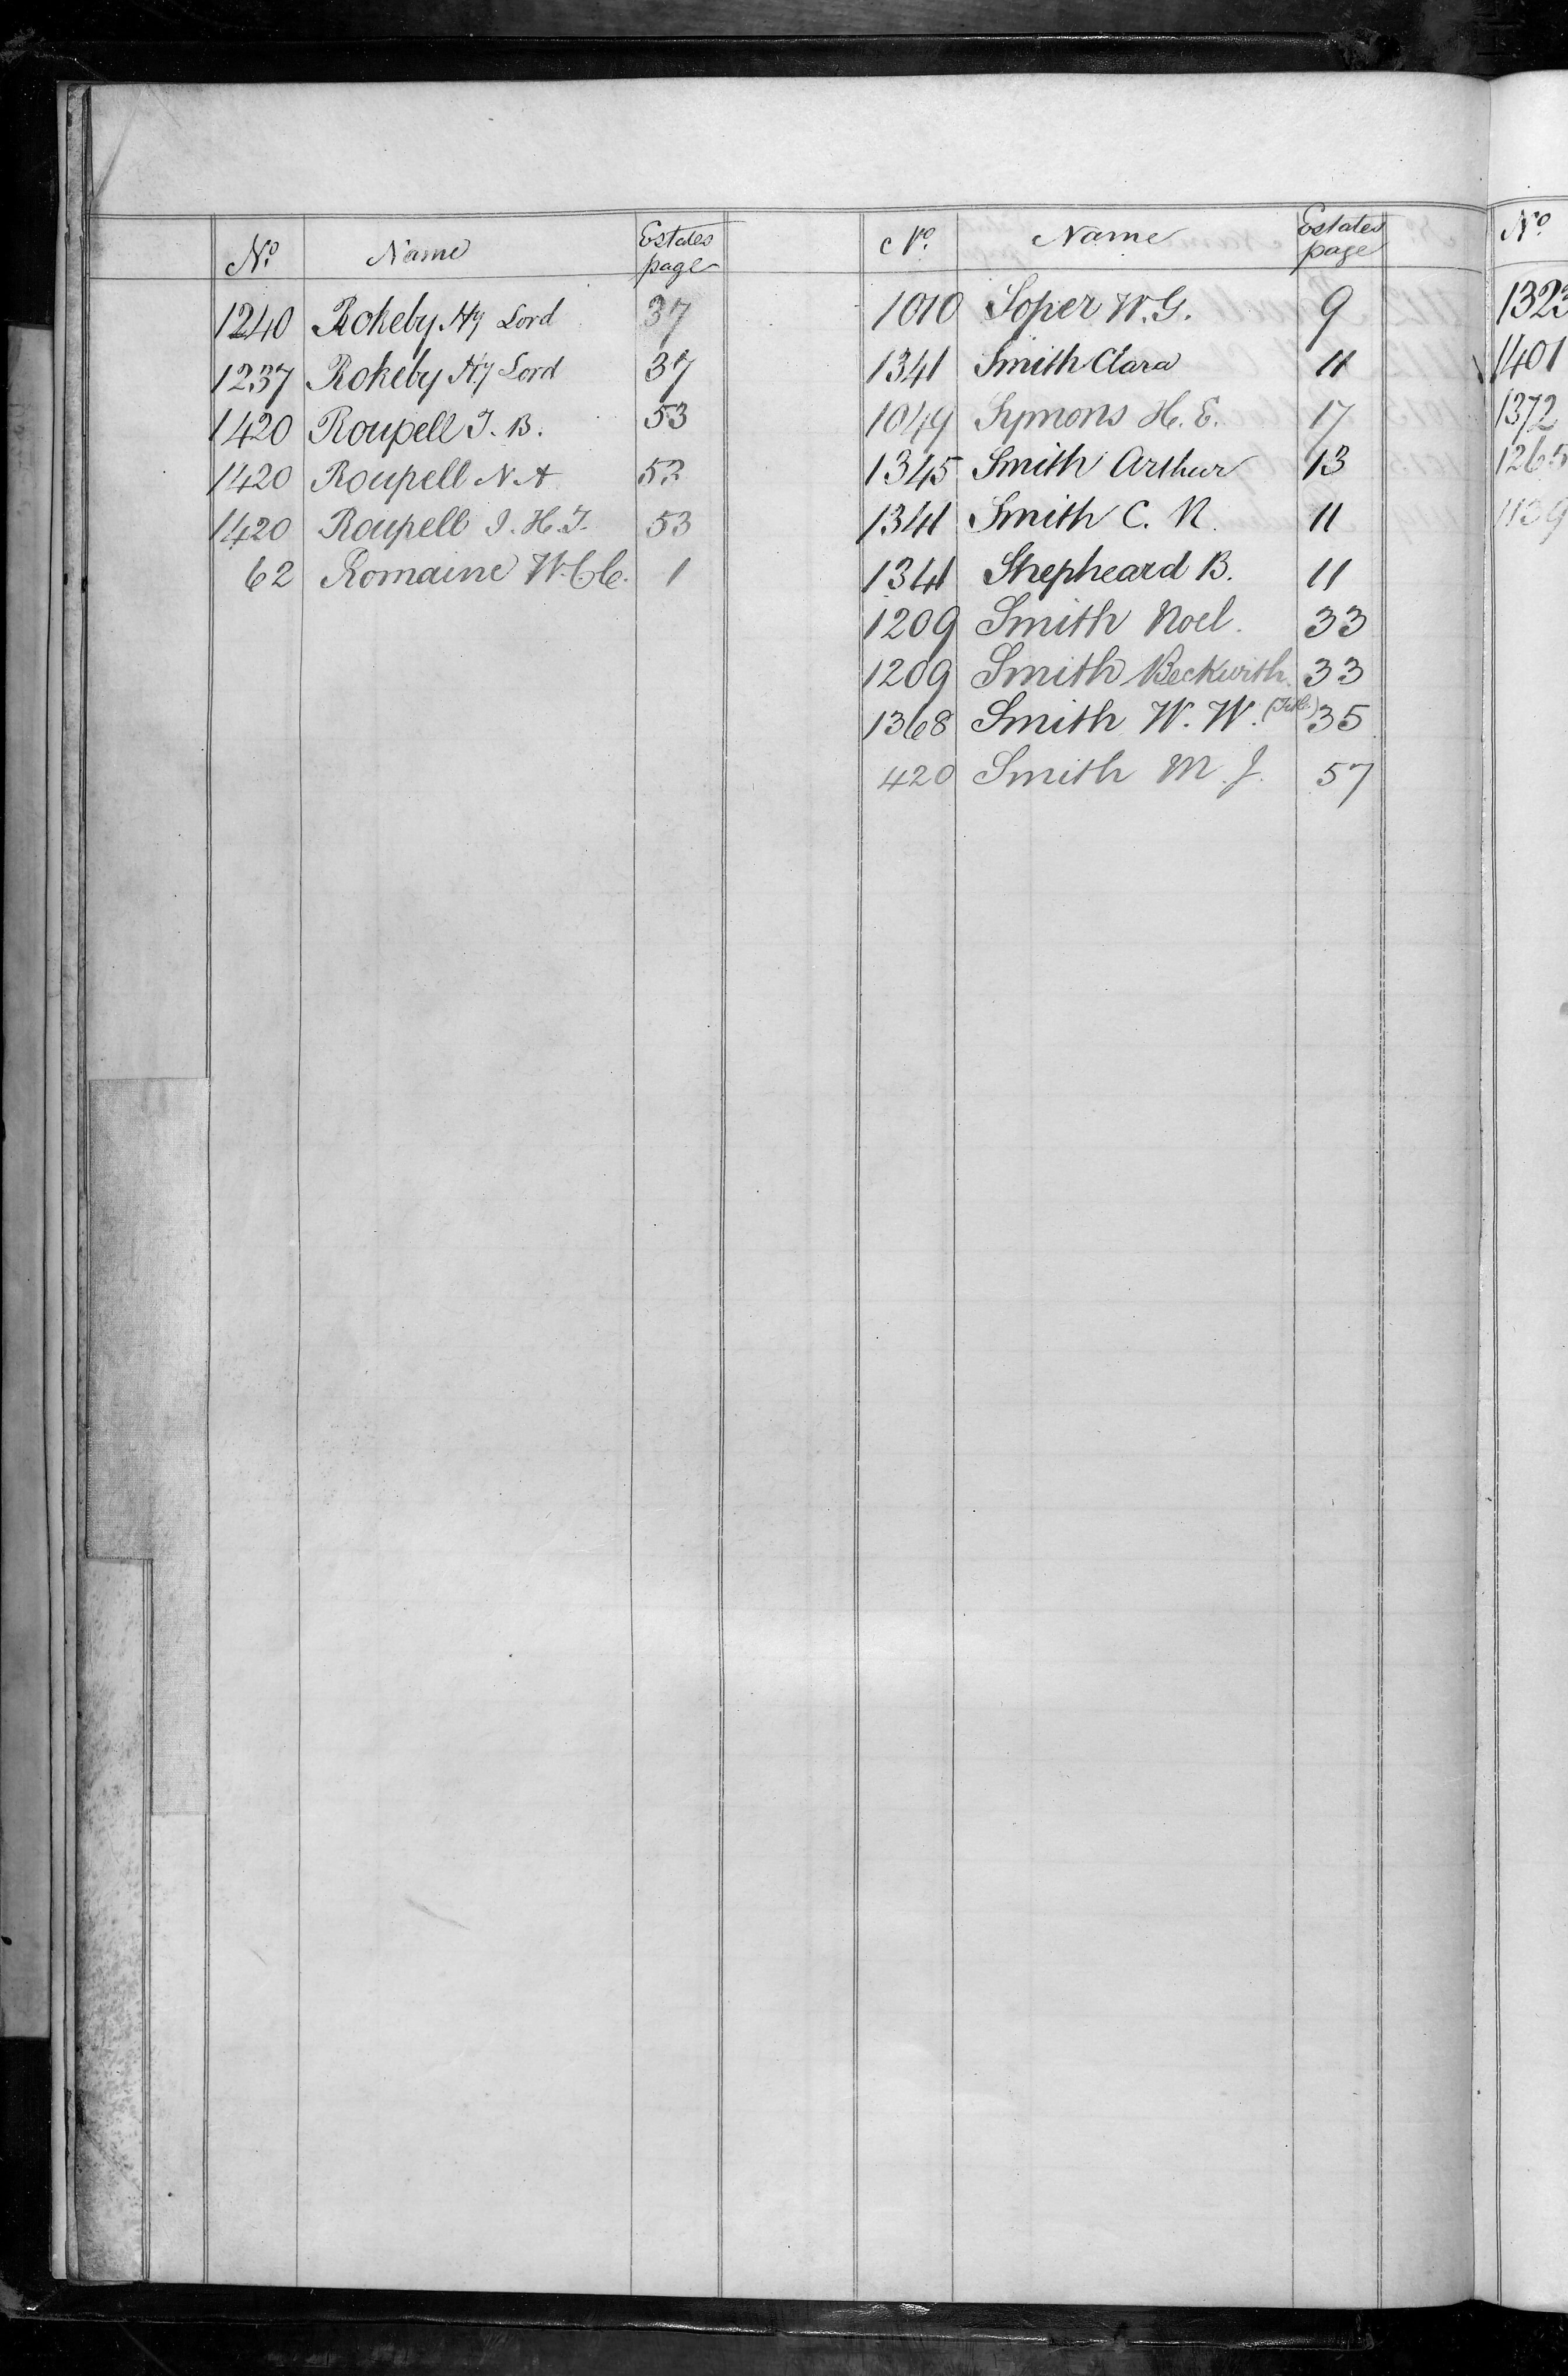 No. Name Estates page
1240 Rokeby Hy Lord 37
1237 Rokeby Hy Lord 37
1420 Roupell T. B. 53
1420 Roupell N. A 53
1420 Roupell J. H. T. 53
62 Romaine 1
No. Name Estates page
1010 Soper W. G. 9
1341 Smith Clara 11
1049 Symons H. E. 17
1345 Smith Arthur 13
1341 Smith C. N. 11
1341 Shepheard B. 11
1209 Smith Noel. 33
1209 Smith Beckwith. 33
1368 Smith W. W. 35
420 Smith M. J. 57
No
1323
1401
1372
1265
1139